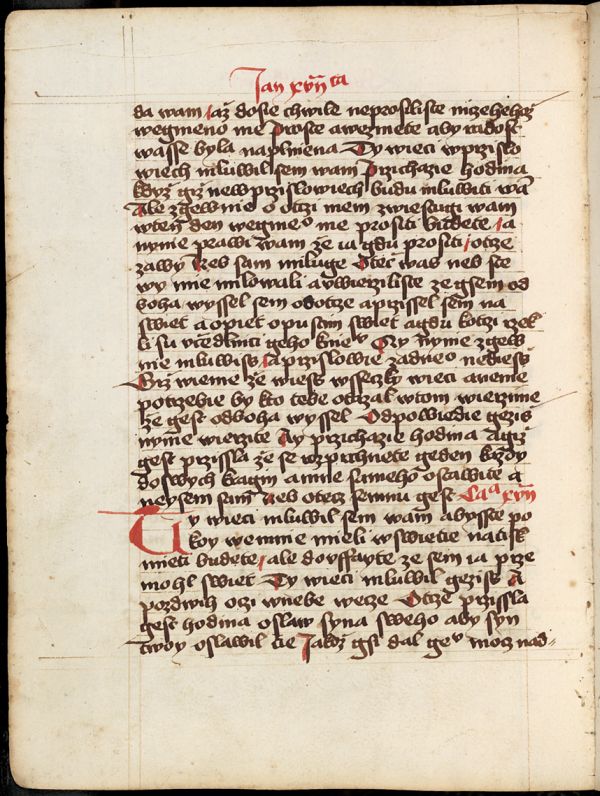 Jan xvıı̄ ta
da wam / až dosie chwile neprosiliste nizehehož
wegmeno me Proste a wezmete aby radost
wasse byla naplniena Ty wieci wprzislo
wiech mluwil sem wam Przichazie hodina
když giž newprzislowiech budu mluwiti wā
Ale zgewnie o otczi mem zwiestugi wam
wten den wegmeᵒ me prositi budete / a
nynie prawi wam že ia gdu prositi / otcze
zawy Neb sam miluge Otec was neb ste
wy mie milowali a vwierziliste ze gsem od
boha wyssel sem odotze a przissel sem na
swiet a opiet opusim swiet a gdu kotczi rzek
li su vczedlnici geho kneᵘ Oty nynie zgew
nie mluwiss / a przislowie zadneᵒ nediess
Giz wieme že wiess wsseczky wieci a neme
potrzebie by kto tebe otazal wtom wierzime
že gest odboha wyssel Odpowiedie geziss
nynie wierzite Ay przichazie hodina a giz
gest przissla že se rozprchnete geden kazdy
doswych kagin a mne sameho ostawite a
neysem sam Neb otecz semnu gest Caᵃ xvıı̄
Ty wieci mluwil sem wam abysste po
koy wemnie mieli w swietie natisk
mieti budete / ale dovffayte ze sem ia prze
mohl swiet Ty wieci mluwil geziss A
pozdwih oczi wnebe wecze Otcze przissla
gest hodina oslaw syna sweho aby syn
twoy oslawil tie Jakž gsi dal geᵘ mocz nad-